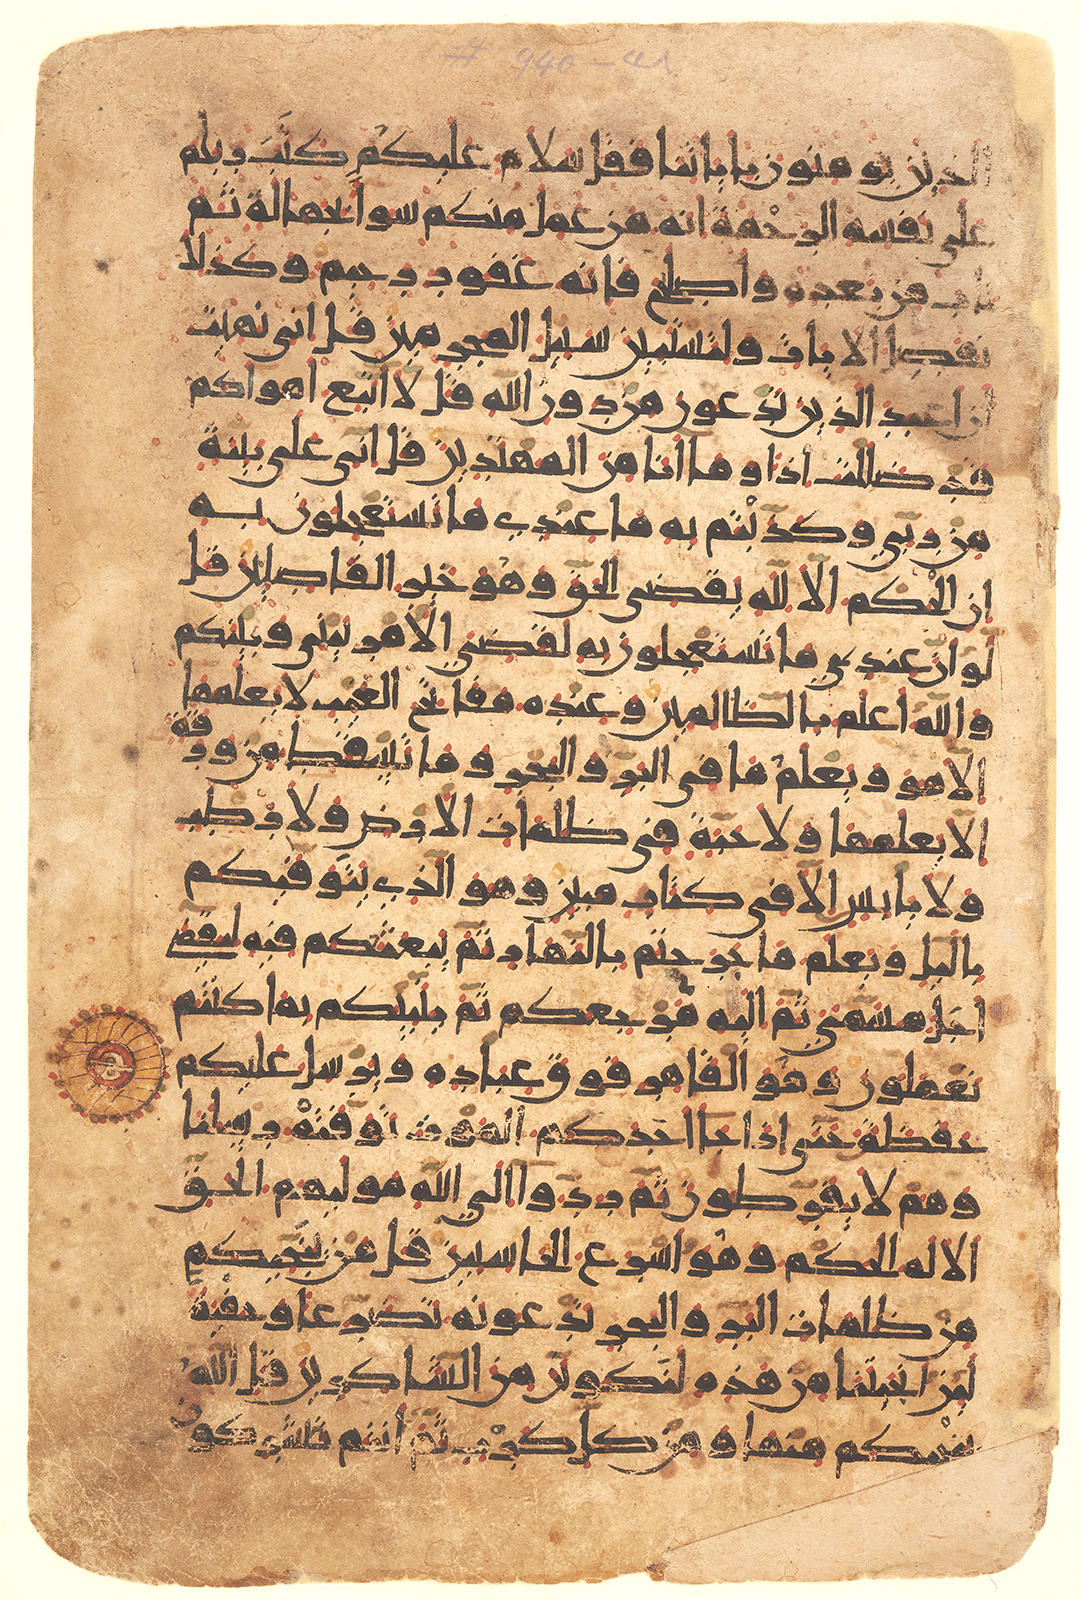 # 940 -
الذين يومنون باياتنا فقل سلام عليكم كتب ربكم
على نفسه الرحمة انه من عمل منكم سوا بجهالة ثم
تاب من بعده واصلح فانه غفور رحيم وكذلك
نفصل الايات ولتستبين سبيل المجرمين قل اني نهيت
ان اعبد الذين تدعون من دون الله قل لا اتبع اهواكم
قد ضللت اذا وما انا من المهتدين قل اني على بينة
من ربي وكذبتم به ما عندي ما تستعجلون به
ان الحكم الا لله يقضي الحق وهو خير الفاصلين قل
لو ان عندي ما تستعجلون به لقضي الامر بيني وبينكم
والله اعلم بالظالمين وعنده مفاتح الغيب لا يعلمها
الا هو ويعلم ما في البر والبحر وما تسقط من ورقة
الا يعلمها ولا حبة في ظلمات الارض ولا رطب
ولا يابس الا في كتاب مبين وهو الذي يتوفيكم
بالليل ويعلم ما جرحتم بالنهار ثم يبعثكم فيه ليقضى
اجل مسمى ثم اليه مرجعكم ثم ينبيكم بما كنتم
تعملون وهو القاهر فوق عباده ويرسل عليكم
حفظة حتى اذا جا احدكم الموت توفته رسلنا
وهم لا يفرطون ثم ردوا الى الله موليهم الحق
الا له الحكم وهو اسرع الحاسبين قل من ينجيكم
من ظلمات البر والبحر تدعونه تضرعا وخفية
لين انجيتنا من هذه لنكونن من الشاكرين قل الله
ينجيكم منها ومن كل كرب ثم انتم تشركون